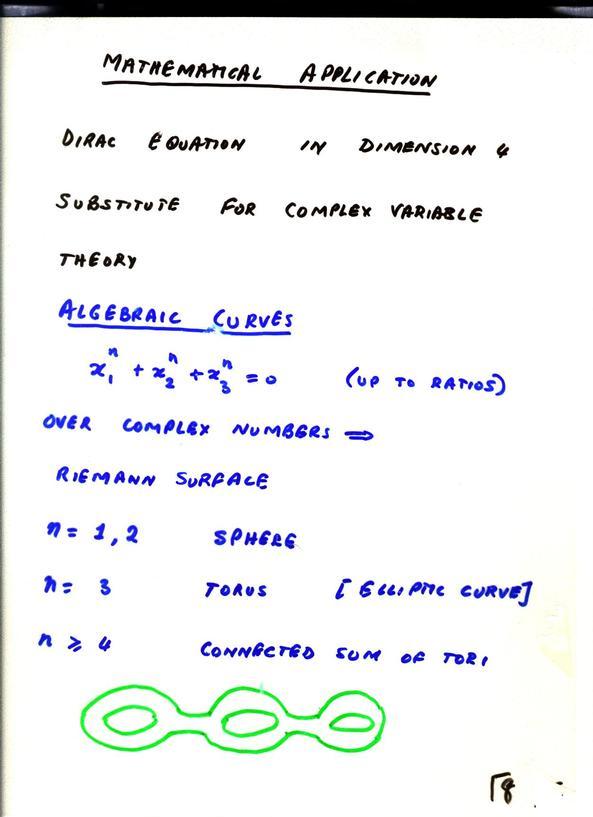 MATHEMATICAL APPLICATION
DIRAC EQUATION IN DIMENSION 4
SUBSTITUTE FOR COMPLEX VARIABLE
THEORY
ALGEBRAIC CURVES
x₁ⁿ + x₂ⁿ + x₃ⁿ = 0 (UP TO RATIOS)
OVER COMPLEX NUMBERS ⇒
RIEMANN SURFACE
n = 1, 2 SPHERE
n = 3 TORUS [ELLIPTIC CURVE]
n ⩾ 4 CONNECTED SUM OF TORI